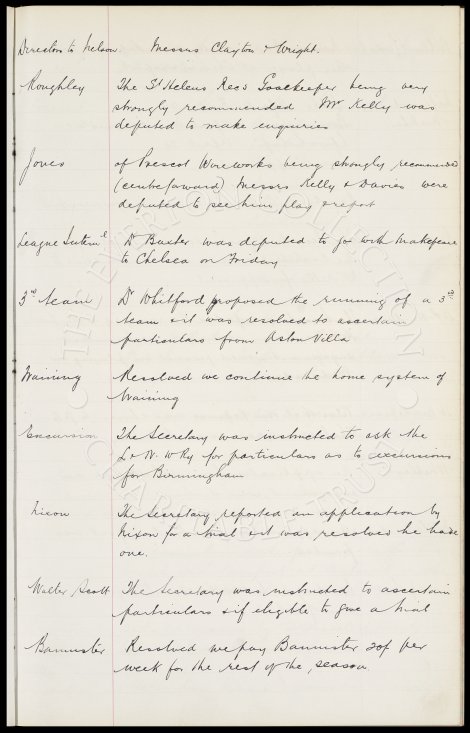 Directors to Nelson. Messrs Clayton & Wright.
Roughley The St Helens Recs Goalkeeper being very
strongly recommended Mr Kelly was
deputed to make enquiries
Jones of Prescot Wireworks being strongly recommended
(centreforward) Messrs Kelly & Davies were
deputed to see him play & report
League Intern'l Dr Baxter was deputed to go with Makepeace
to Chelsea on Friday
3rd team Dr Whitford proposed the running of a 3rd
team & it was resolved to ascertain
particulars from Aston Villa
Training Resolved we continue the home system of
training
Excursion The Secretary was instructed to ask the
L & N. W Ry for particulars as to excursions
for Birmingham
Nixon The Secretary reported an application by
Nixon for a trial & it was resolved he have
one.
Walter Scott The Secretary was instructed to ascertain
particulars & if eligible to give a trial
Bannister Resolved we pay Bannister 20/- per
week for the rest of the season.
THE EVERTON COLLECTION
CHARITABLE TRUST